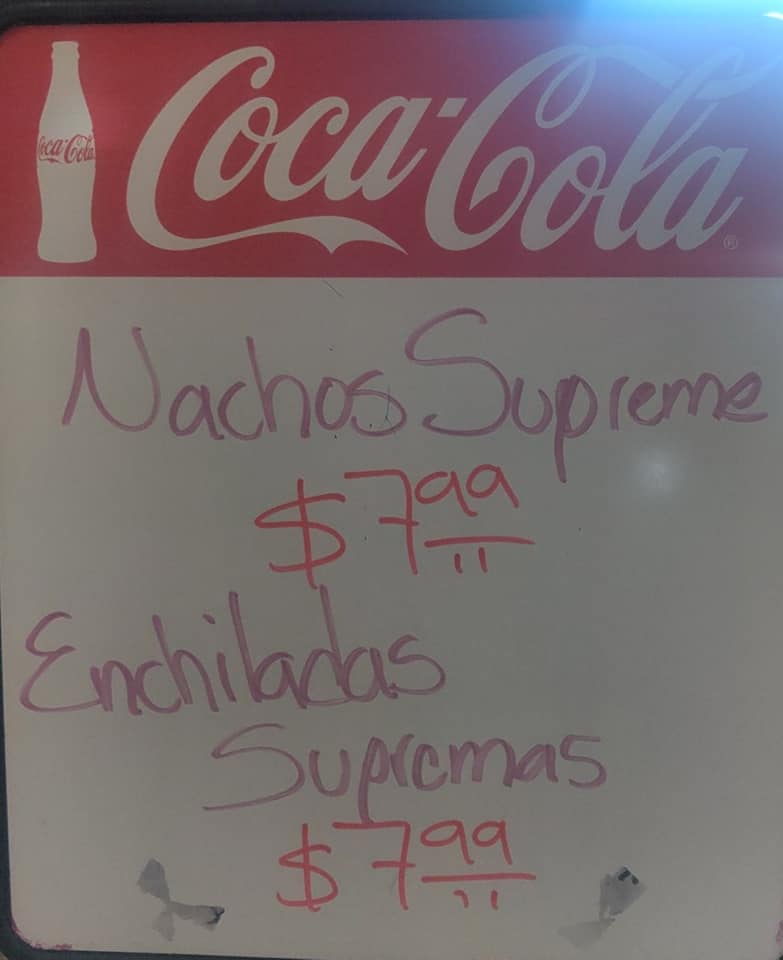 Coca-Cola
Coca-Cola®
Nachos Supreme
$7.99
Enchiladas
Supremas
$7.99